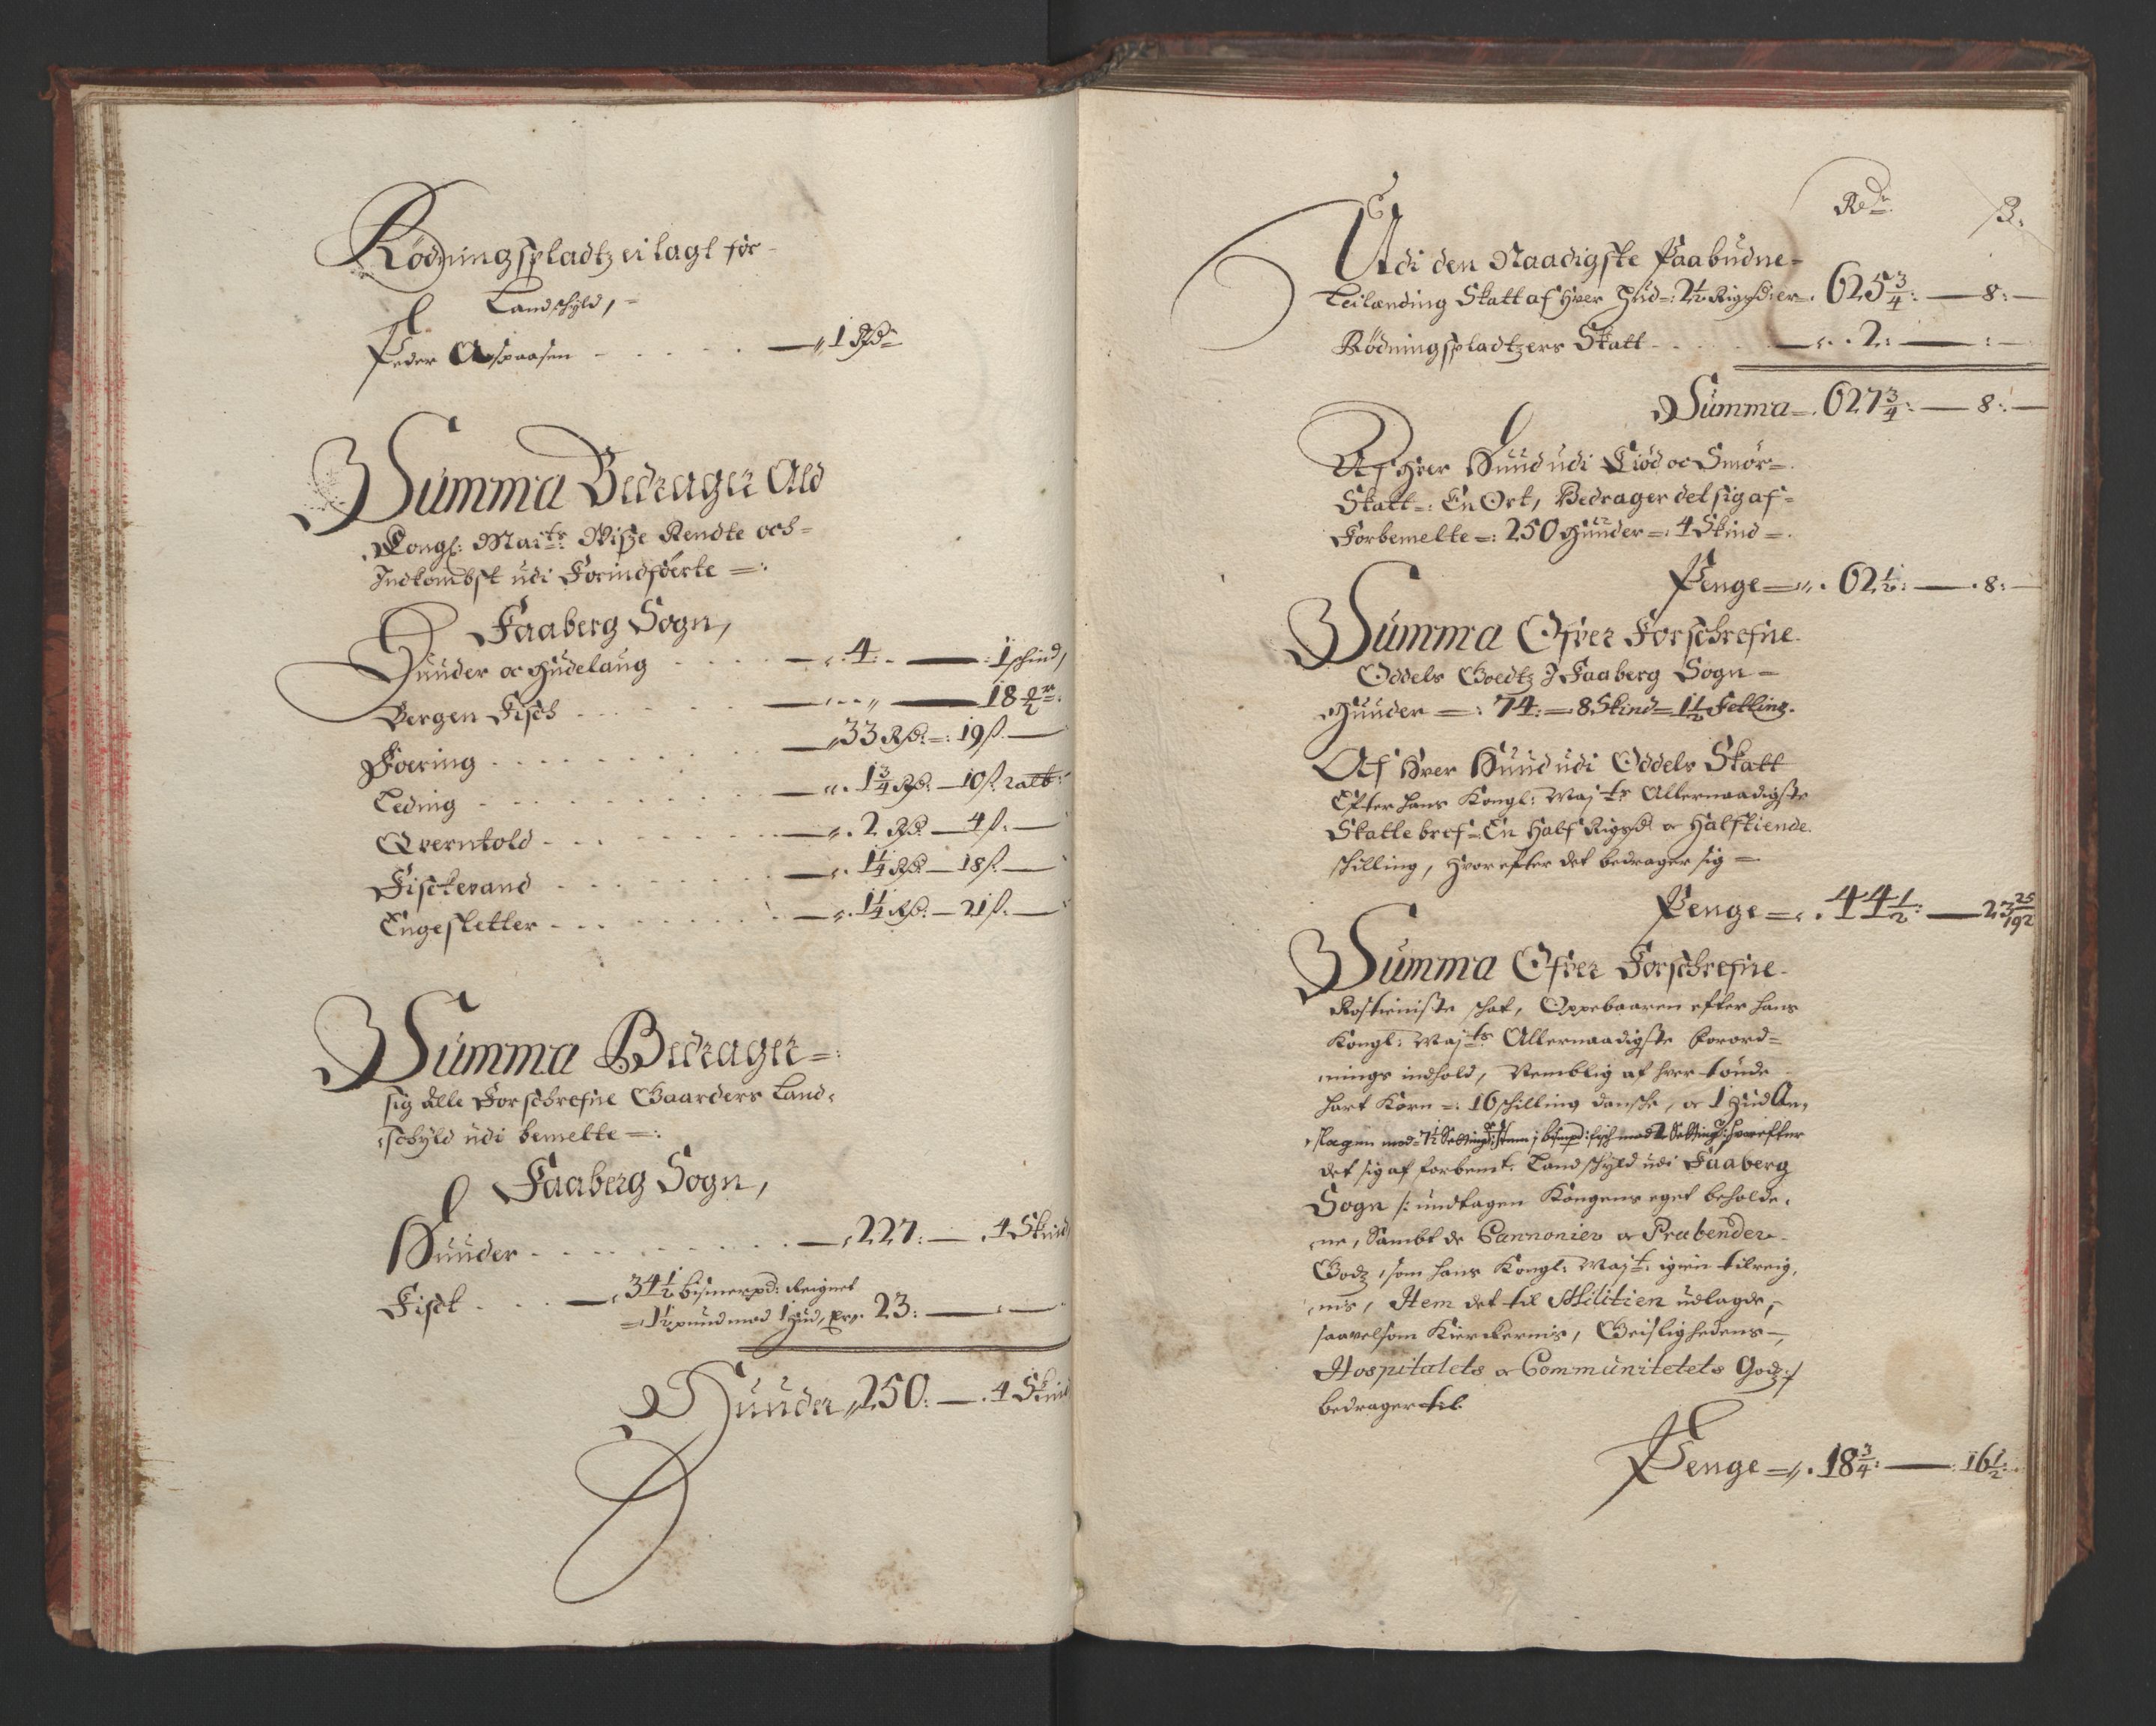 Rödningspladtz ei lagt for
Landschyld,
Peder Aaspaasen 1 Rdr
Summa Bedrager Ald
Kongl: Maits: Visse Rendte och
Indkombst udi Forindförte
Faaberg Sogn,
Huuder oc Hudelaug 4: 1 schind,
Bergen Fisch 18 mr
Foering 33 Rd: 19 ß.
Leding 1 3/4 Rd: 10 ß
Qverntold 2 Rd: 4 ß.
Fischevand 1 1/4 Rd: 18 ß.
Engesletter 1 1/4 Rd: 21 ß.
Summa Bedrager
sig alle Forschrefne Gaarders Land-
schyld udi bemelte
Faaberg Sogn,
Huuder 227: 4 Skind
Fisch 34 1/2 bismerpd: Reignet
1 1/2 pund mod 1 Hud, er 23:
Huuder 250: 4 Skind
Rdr ß.
Udi den Naadigste Paabudne
Leilænding Skatt af Hver Hud: 2 1/2 Rigsdr: er 625 3/4: 8:
Rödningspladtzers Skatt 2:
Summa 627 3/4: 8:
Af Hver Huud udi Kiöd oc Smör
Skatt: En Ort, Bedrager det sig af
Forbemelte: 250 Huuder: 4 Skind
Penge 62 1/2: 8:
Summa Ofver Forschrefne
Oddels Goedtz I Faaberg Sogn
Huuder: 74: 8 Skind 1 1/2 Fetling.
Af Hver Huud udi Oddels Skatt
Efter hans Kongl: Majts Allernaadigste
Skatte bref: En Half Rigsdr oc Halftiende
schilling, Hvorefter det bedrager sig
Penge 44 1/2: 23 25/192
Summa Ofver Forschrefne
Rostieniste schat, Oppebaaren efter hans
Kongl: Majts Allernaadigste forord-
nings indhold, Nemblig af hver tönde
hart Korn: 16 schilling dansche, oc 1 Hud An-
slagen mod 7 1/2 Setting, fisch med Setting: hvorefter
det sig af forbemte Landschyld udi Faaberg
Sogn /: undtagen Kongens eget beholde-
ne, Sambt de Cannonier oc Præbender
Godz, som hans Kongl: Majt: igien tilreig-
nis, Item det til Militien udlagde,
saavelsom Kierckernis, Geislighedens,
Hospitalets oc Communitetets Godz :/
bedrager til
Penge 18 3/4: 16 1/2: